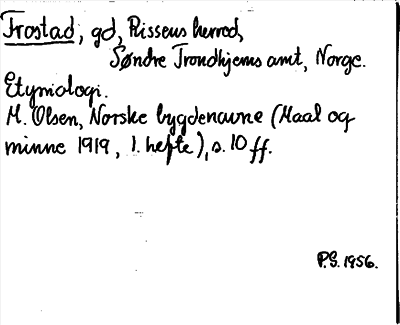 Frostad, gd, Rissens herred,
Søndre Trondhjems amt, Norge.
Etymologi.
M. Olsen, Norske bygdenavne (Maal og
minne 1919, 1. hefte), s. 10 ff.
P.S. 1956.